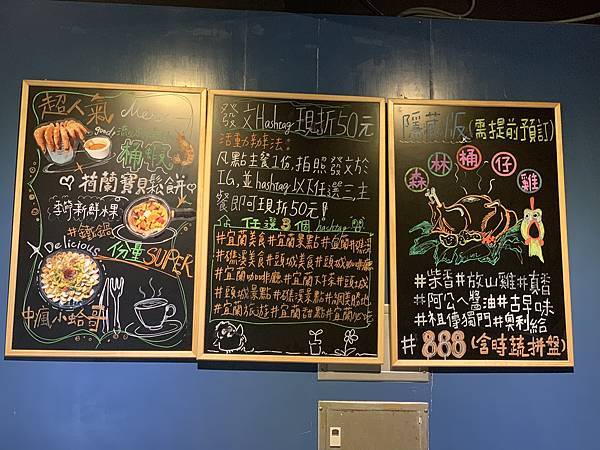 超人氣 Menu
good
桶蝦
荷蘭寶貝鬆餅
季節新鮮水果
#鑄鐵鍋
Delicious
份量SUPER
中瘋小蛤哥
發文Hashtag現折50元
活動辦法:
凡點主餐1份,拍照發文於
IG,並hashtag以下任選三主
餐即可現折50元!
任選3個hashtag
#宜蘭美食#宜蘭景點#宜蘭#礁溪
#礁溪美食#頭城美食#頭城
#宜蘭 #宜蘭下午茶#頭城
#頭城景點#礁溪景點#網美勝地
#宜蘭旅遊#宜蘭甜點#宜蘭
隱藏版(需提前預訂)
森林桶仔雞
#柴香#放山雞#真香
#阿公ㄟ醬油#古早味
#祖傳獨門#奧利給
#888(含時蔬拼盤)